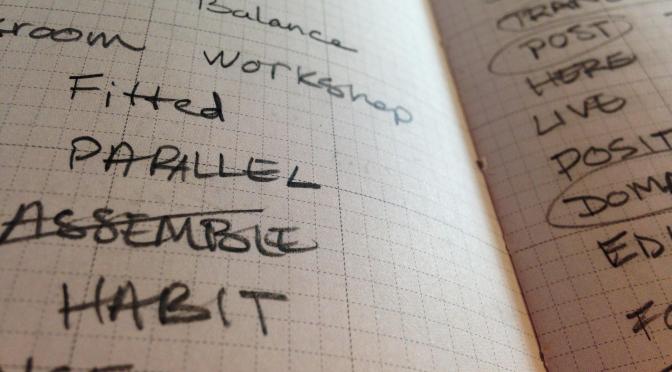 Balance
room Workshop
Fitted
PARALLEL
ASSEMBLE
HABIT
TRANS
POST
HERE
LIVE
POSIT
DOMA
EDI
FO